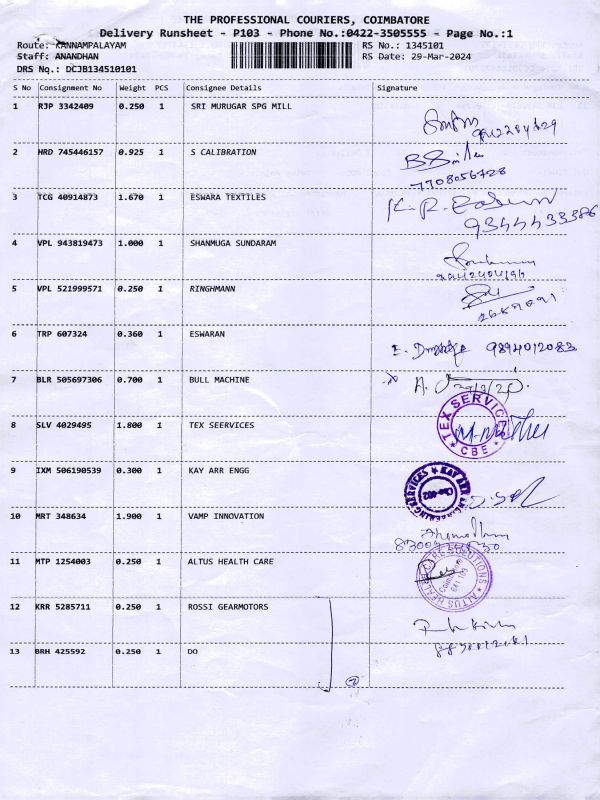 THE PROFESSIONAL COURIERS, COIMBATORE
Delivery Runsheet - P103 - Phone No.:0422-3505555 - Page No.:1
Route: KANNAMPALAYAM RS No.: 1345101
Staff: ANANDHAN RS Date: 29-Mar-2024
DRS No.: DCJB134510101
S No Consignment No Weight PCS Consignee Details Signature
1 RJP 3342409 0.250 1 SRI MURUGAR SPG MILL
2 HRD 745446157 0.925 1 S CALIBRATION
7708056728
3 TCG 40914873 1.670 1 ESWARA TEXTILES
K. R.
9344433386
4 VPL 943819473 1.000 1 SHANMUGA SUNDARAM
5 VPL 521999571 0.250 1 RINGHMANN
6 TRP 607324 0.360 1 ESWARAN
E. 9894012083
7 BLR 505697306 0.700 1 BULL MACHINE
A.
8 SLV 4029495 1.800 1 TEX SEERVICES
TEX SERVICES
CBE
9 IXM 506190539 0.300 1 KAY ARR ENGG
KAY ARR ENGINEERING SERVICES
10 MRT 348634 1.900 1 VAMP INNOVATION
11 MTP 1254003 0.250 1 ALTUS HEALTH CARE
ALTUS HEALTH CARE SOLUTIONS
12 KRR 5285711 0.250 1 ROSSI GEARMOTORS
13 BRH 425592 0.250 1 DO
2